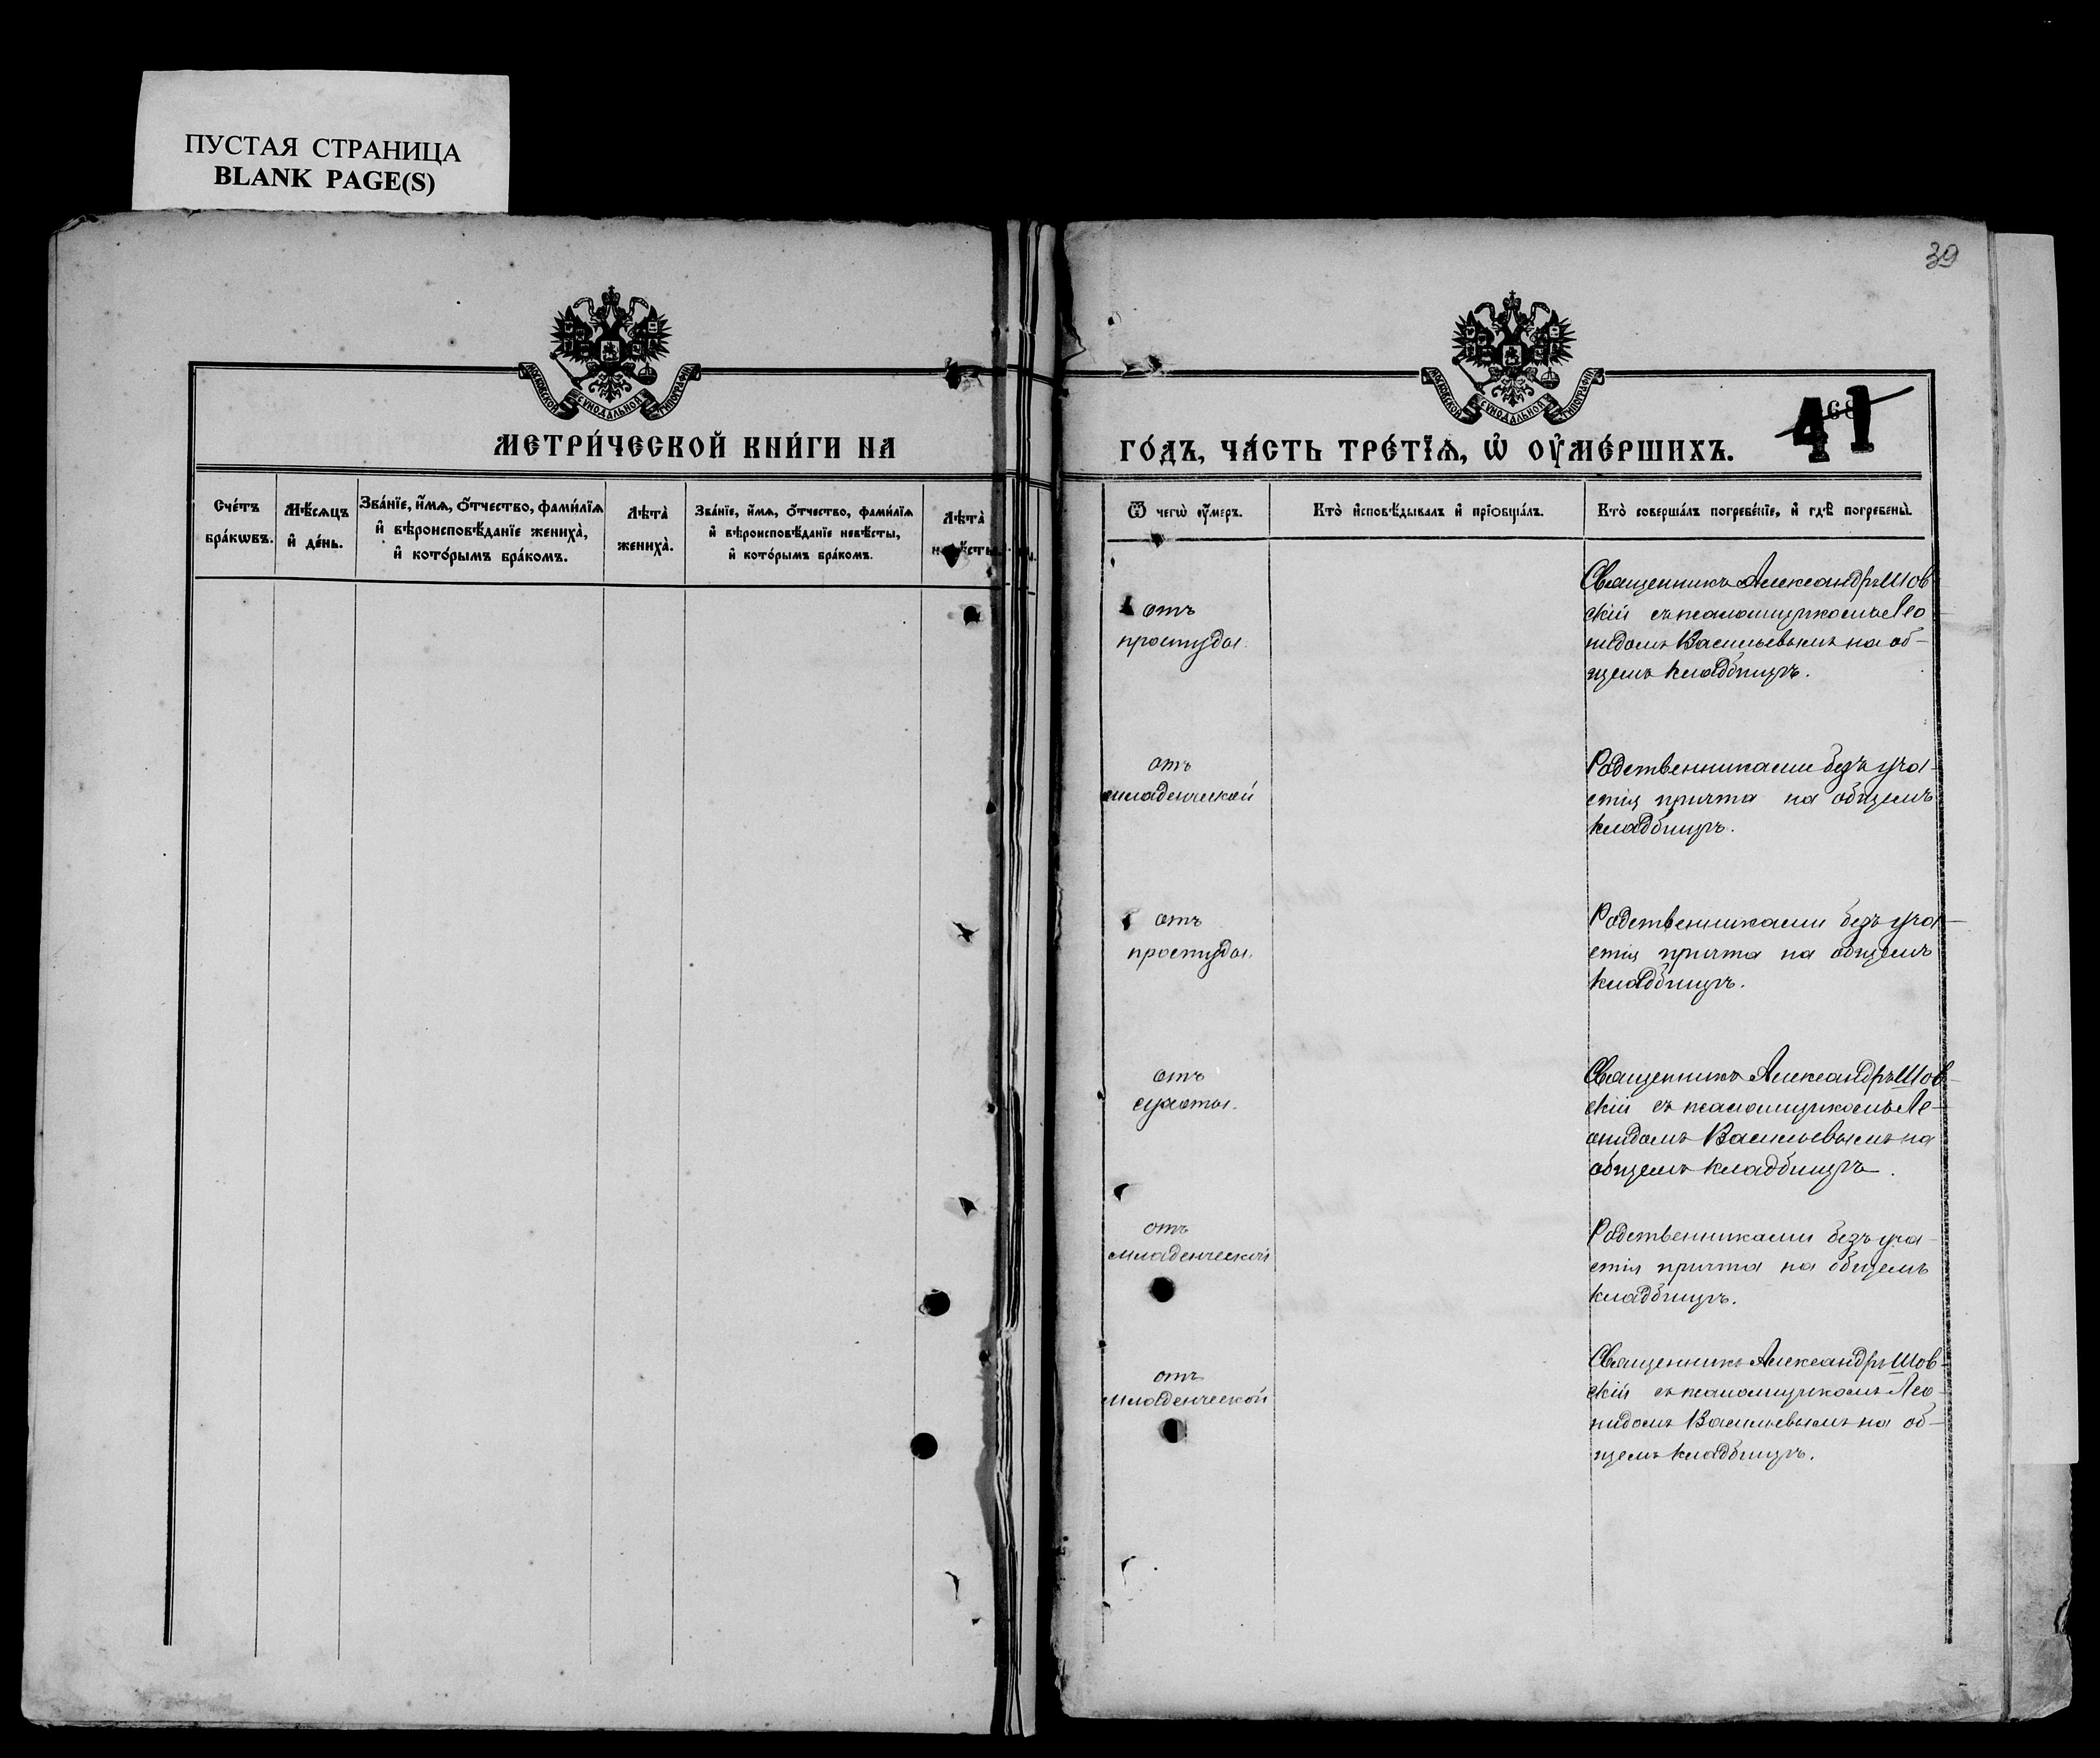 ПУСТАЯ СТРАНИЦА
BLANK PAGE(S)
МОСКОВСКОЙ СУНОДАЛЬНОЙ ТИПОГРАФІИ
МЕТРИ́ЧЕСКОЙ КНИ́ГИ НА
Сче́тъ бра́кѡвъ.
Мѣ́сѧцъ и҆ де́нь.
Зва́нїе, и҆́мѧ, ѻ҆́тчество, фами́лїѧ
и҆ вѣроисповѣ́данїе жениха̀,
и҆ кото́рымъ бра́комъ.
Лѣта̀ жениха̀.
Зва́нїе, и҆́мѧ, ѻ҆́тчество, фами́лїѧ
и҆ вѣроисповѣ́данїе невѣ́сты,
и҆ кото́рымъ бра́комъ.
Лѣта̀
39
МОСКОВСКОЙ СУНОДАЛЬНОЙ ТИПОГРАФІИ
41
ГО́ДЪ, ЧА́СТЬ ТРЕ́ТЇѦ, Ѡ҆ ОУ҆МЕ́РШИХЪ.
Ѿ чегѡ̀ оу҆́меръ.
Кто̀ и҆сповѣ́дывалъ и҆ прїѻбща́лъ.
Кто̀ соверша́лъ погребе́нїе, и҆ гдѣ̀ погребены̀.
отъ
простуды.
Священникъ Александръ Шов
скій съ псаломщикомъ Лео
нидомъ Васильевымъ на об-
щемъ кладбищѣ.
отъ
младенческой
Родственниками безъ уча-
стія причта на общемъ
кладбищѣ.
отъ
простуды.
Родственниками безъ уча-
стія причта на общемъ
кладбищѣ.
отъ
Священникъ Александръ Шов-
скій съ псаломщикомъ Ле-
онидомъ Васильевымъ на
общемъ кладбищѣ.
отъ
младенческой
Родственниками безъ уча-
стія причта на общемъ
кладбищѣ.
отъ
младенческой
Священникъ Александръ Шов-
скій съ псаломщикомъ Лео-
нидомъ Васильевымъ на об-
щемъ кладбищѣ.